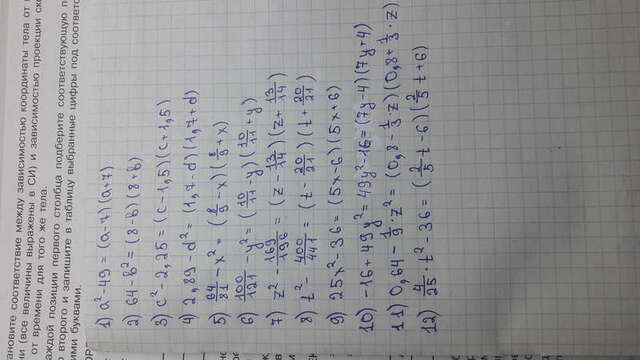 тановите соответствие между зависимостью координаты тела от
ни (все величины выражены в СИ) и зависимостью проекции ско
от времени для того же тела.
каждой позиции первого столбца подберите соответствующую по
о второго и запишите в таблицу выбранные цифры под соответс
ими буквами.
1) a²-49 = (a-7)(a+7)
2) 64-b² = (8-b)(8+b)
3) c²-2,25 = (c-1,5)(c+1,5)
4) 2,89-d² = (1,7-d)(1,7+d)
5) 64/81 - x² = (8/9 - x)(8/9 + x)
6) 100/121 - y² = (10/11 - y)(10/11 + y)
7) z² - 169/196 = (z - 13/14)(z + 13/14)
8) t² - 400/441 = (t - 20/21)(t + 20/21)
9) 25x²-36 = (5x-6)(5x+6)
10) -16+49y² = 49y²-16 = (7y-4)(7y+4)
11) 0,64 - 1/9·z² = (0,8 - 1/3·z)(0,8 + 1/3·z)
12) 4/25·t² - 36 = (2/5 t - 6)(2/5 t + 6)